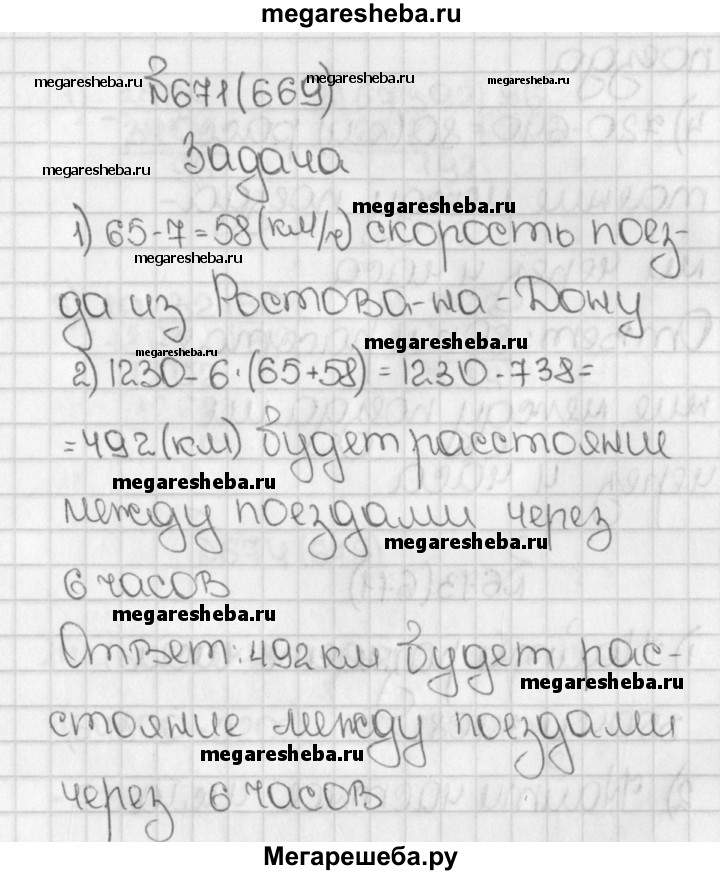 megaresheba.ru
№671(669)
megaresheba.ru megaresheba.ru megaresheba.ru
Задача
megaresheba.ru
megaresheba.ru
1) 65-7=58(км/ч) скорость поез-
megaresheba.ru
да из Ростова-на-Дону
megaresheba.ru
megaresheba.ru
2) 1230-6·(65+58)=1230-738=
=492(км) будет расстояние
megaresheba.ru
между поездами через
megaresheba.ru
6 часов
megaresheba.ru
Ответ: 492 км будет рас-
megaresheba.ru
стояние между поездами
megaresheba.ru
через 6 часов
Мегарешеба.ру